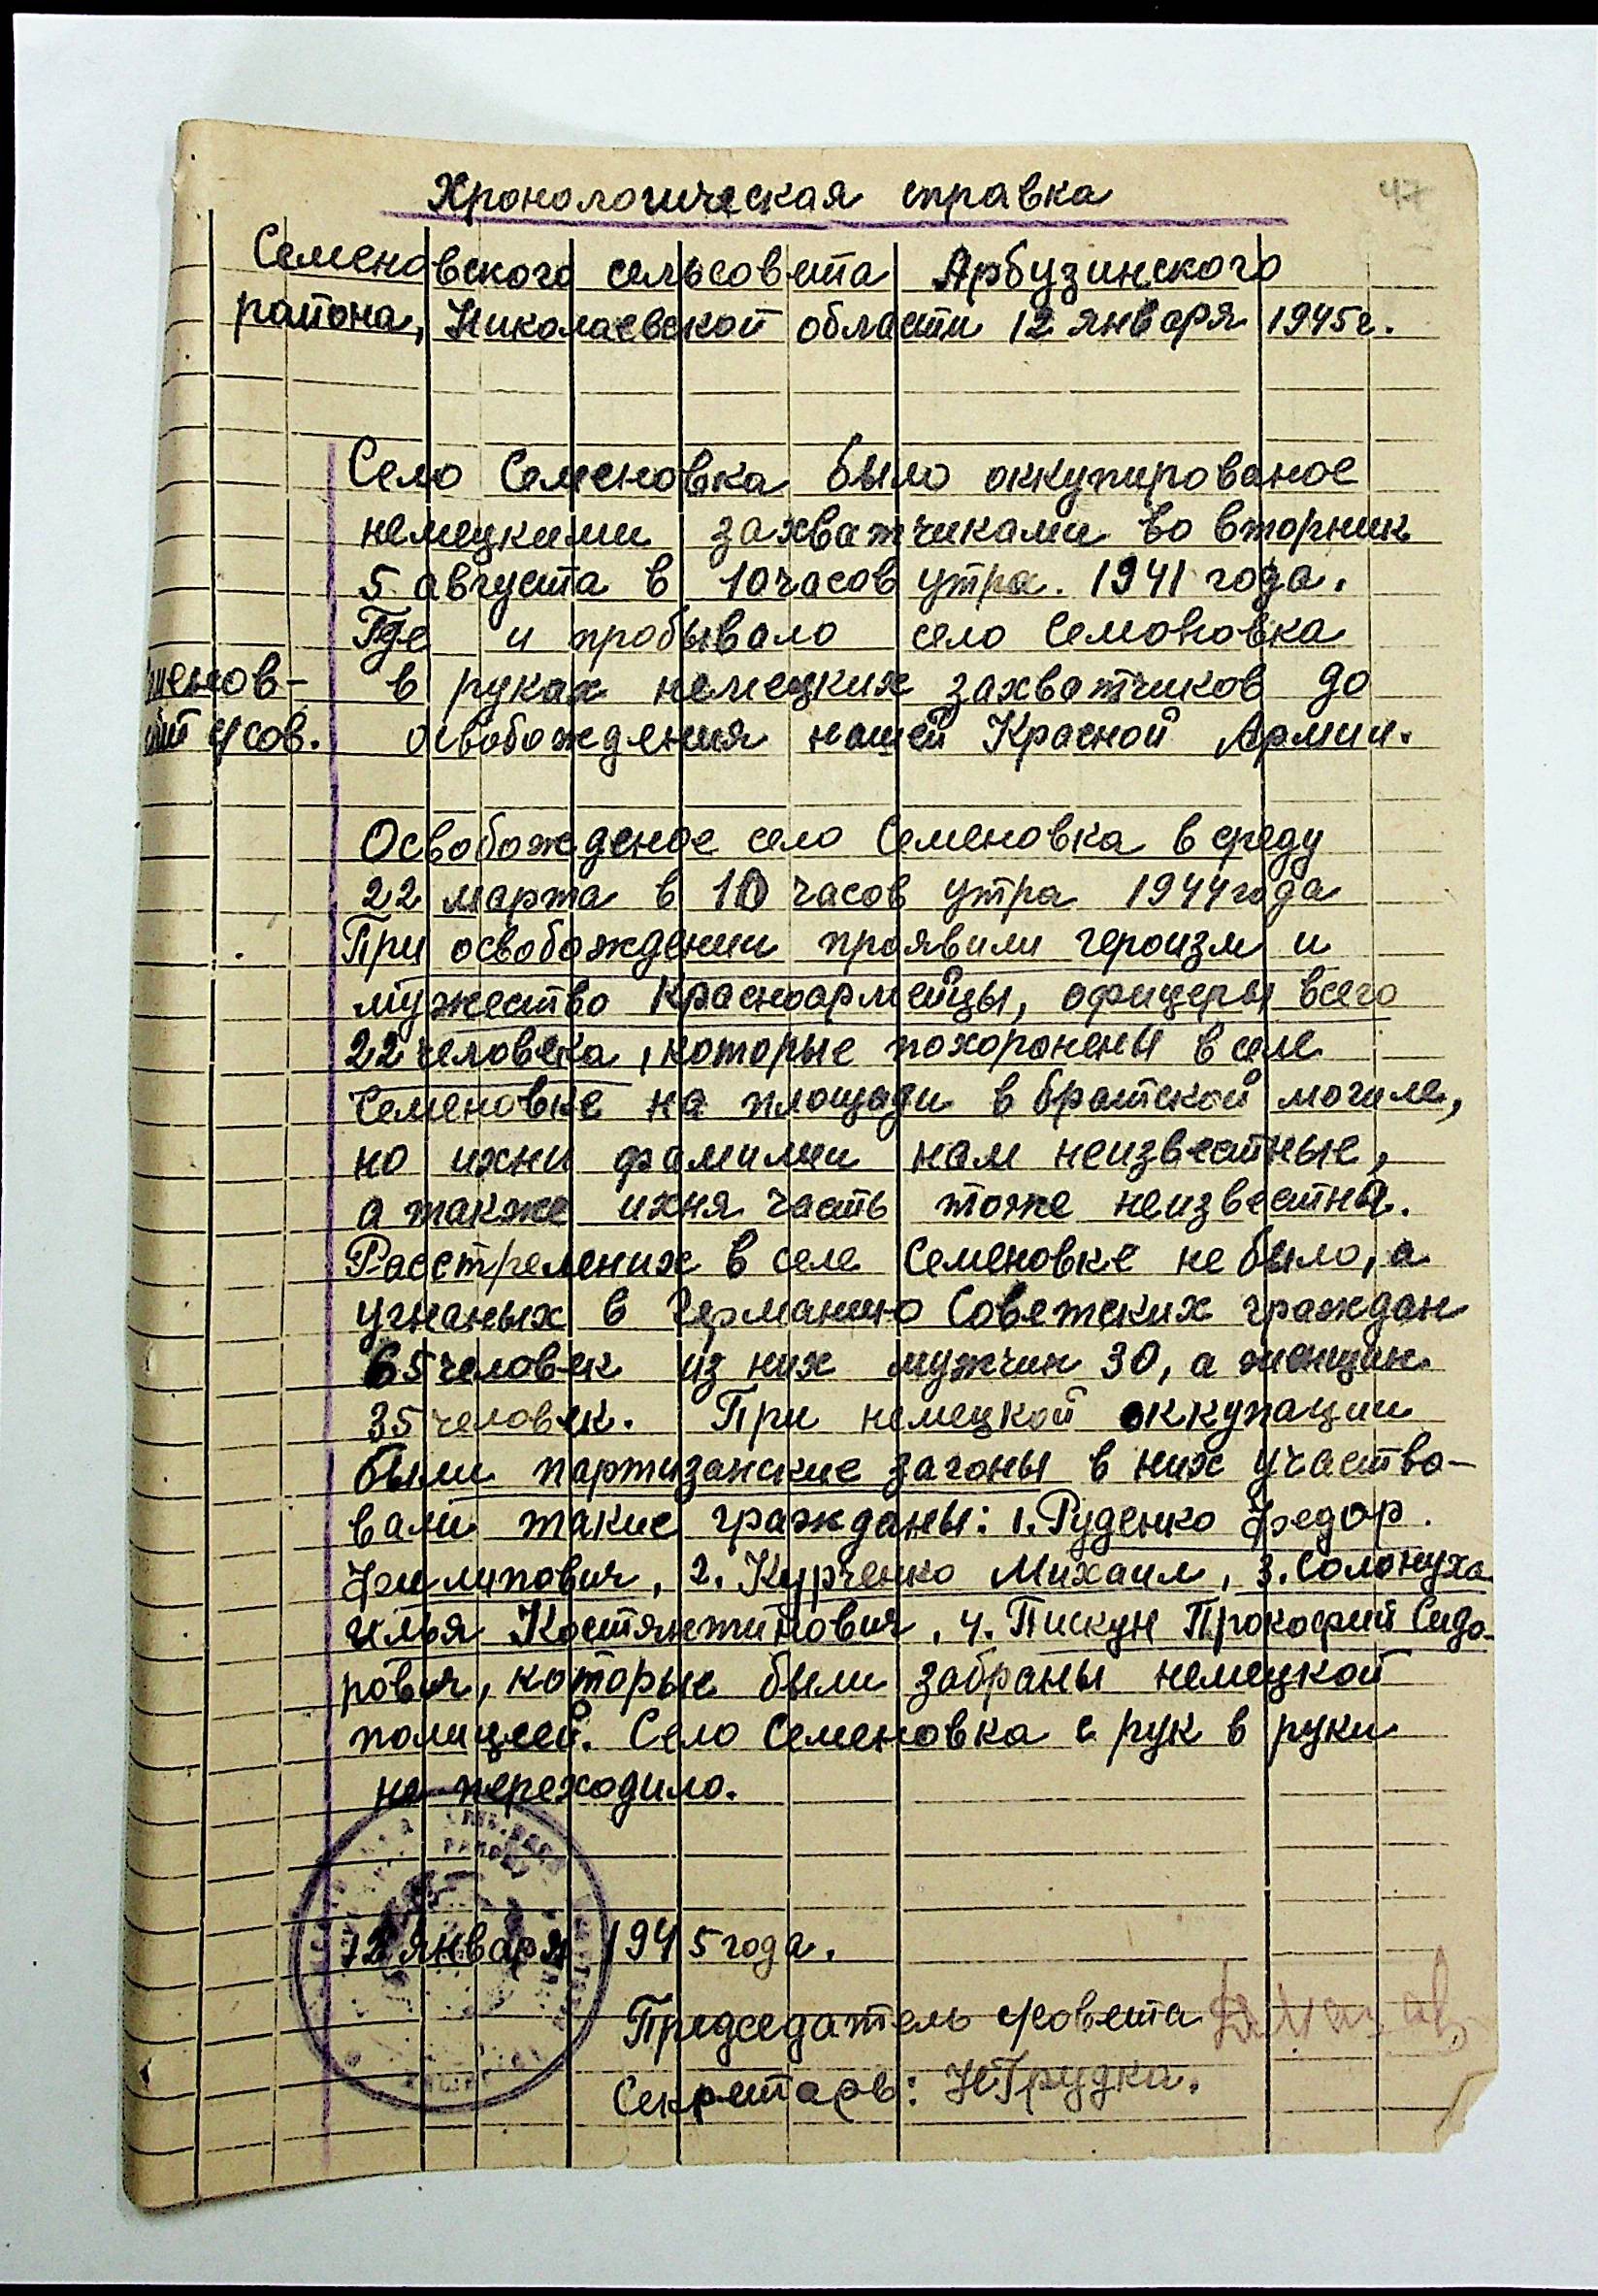 47
Хронологическая справка
Семеновского сельсовета Арбузинского
района, Николаевской области 12 января 1945г.
Село Семеновка было оккупированое
немецкими захватчиками во вторник
5 августа в 10 часов утра. 1941 года.
Где и пробывало село Семоновка
в руках немецких захватчиков до
с/сов. освобождения нашей Красной Армии.
Освобожденое село Семеновка в среду
22 марта в 10 часов утра 1944 года
При освобождении проявили героизм и
мужество Красноармейцы, офицеры всего
22 человека, которые похоронены в селе
Семеновке на площади в братской могиле,
но ихни фамилии нам неизвестные,
а также ихня часть тоже неизвестна.
Расстреляних в селе Семеновке не было, а
угнаных в Германию Советских граждан
65 человек из них мужчин 30, а женщин
35 человек. При немецкой оккупации
были партизанские загоны в них участво-
вали такие гражданы: 1. Руденко Федор
Филипович, 2. Курченко Михаил, 3. Солонуха
Илья Костянтинович, 4. Пискун Прокофий Сидо-
рович, которые были забраны немецкой
полицией. Село Семеновка с рук в руки
не переходило.
12 января 1945 года.
Председатель с/совета
Секретарь: Н Грудка.